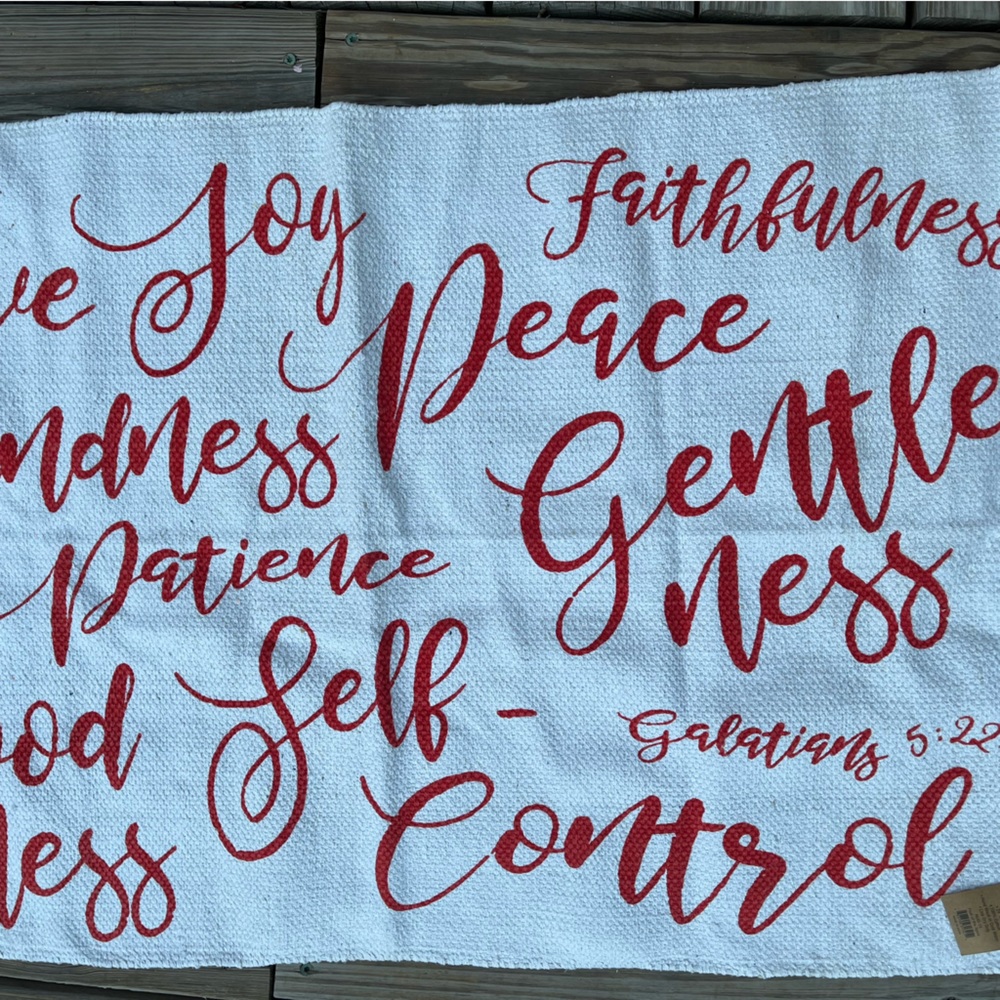 Joy
Faithfulness
ve
Peace
ndness
Gentle
ness
Patience
ood
Self -
Galatians 5:22
ness
Control